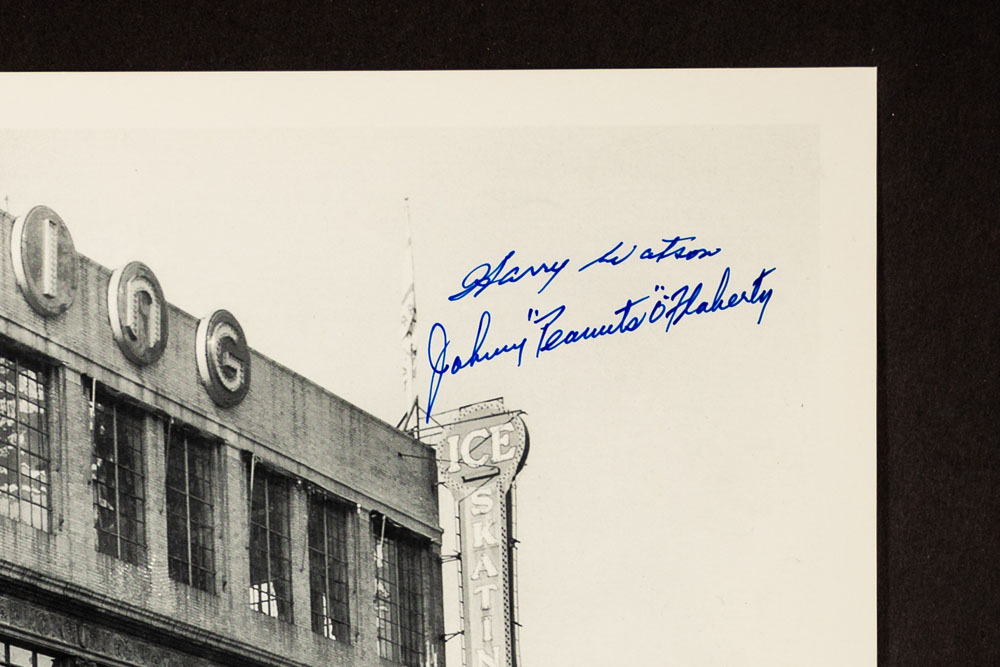 Harry Watson
Johnny "Peanuts" O'Flaherty
I
N
G
ICE
SKATIN